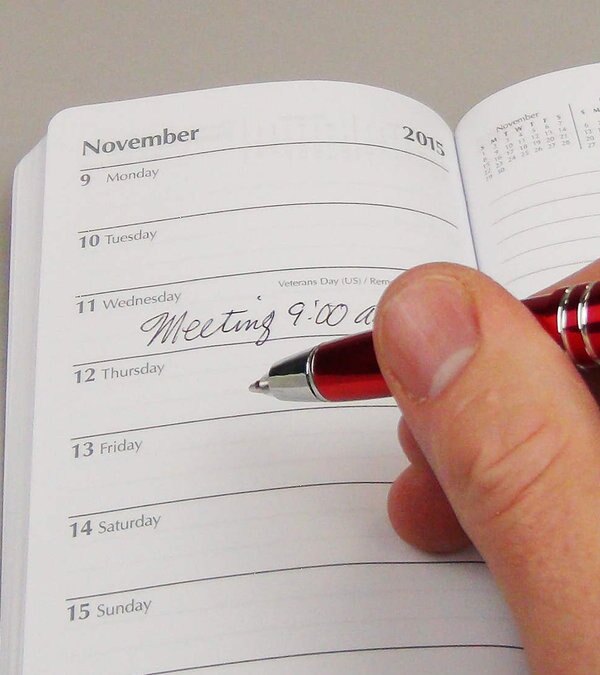 November 2015
9 Monday
10 Tuesday
11 Wednesday
Veterans Day (US) /
Meeting 9:00
12 Thursday
13 Friday
14 Saturday
15 Sunday
November